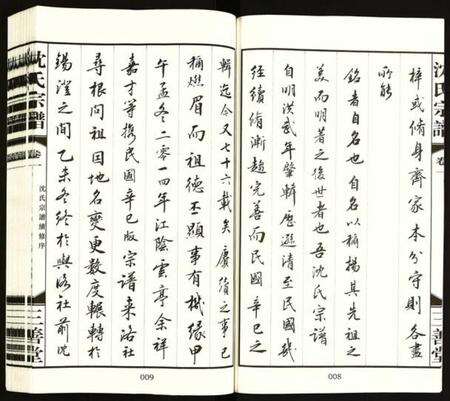 沈氏宗譜
卷一
三善堂
梓或脩身齊家本分守則各盡
所能
銘者自名也自名以稱揚其先祖之
美而明著之後世者也吾沈氏宗譜
自明洪武年肇輯歷遜清至民國幾
經續脩漸趨完善而民國辛巳之
008
輯迄今又七十六載矣賡續之事已
稱燃眉而祖德丕顯事有機緣甲
午孟冬二零一四年江陰雲亭余祥
嘉才等攜民國辛巳版宗譜來洛社
尋根問祖因地名變更數度輾轉於
錫澄之間乙未冬終於與洛社前沈
009
沈氏宗譜續修序
沈氏宗譜
卷一
三善堂